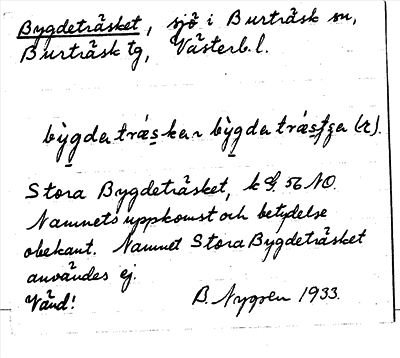 Bygdeträsket, sjö i Burträsk sn,
Burträsk tg, Västerb. l.
bỳgdaträ́skar bỳgdaträ́stʃa (r).
Stora Bygdeträsket, k G. 56 NO.
Namnets uppkomst och betydelse
obekant. Namnet Stora Bygdeträsket
användes ej.
Vänd! B. Nygren 1933.